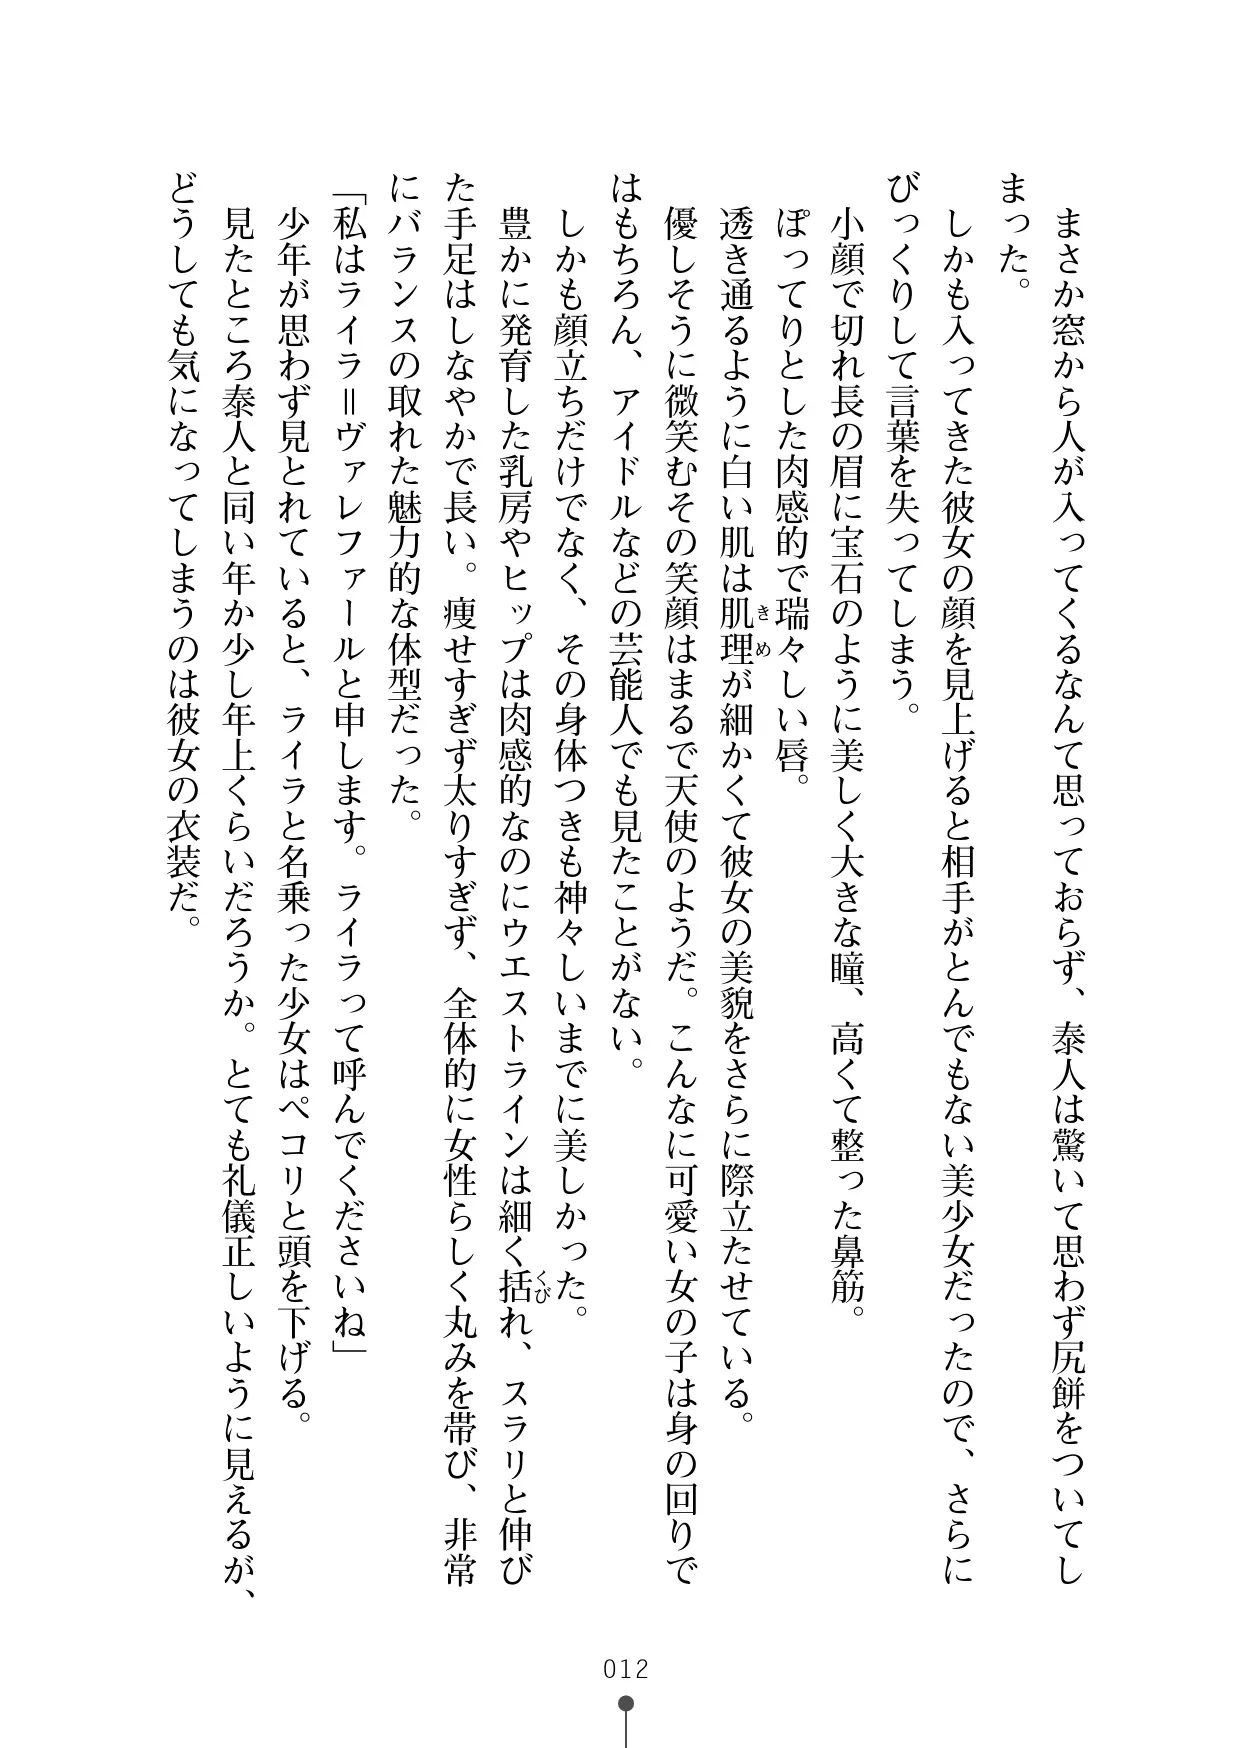 まさか窓から人が入ってくるなんて思っておらず、泰人は驚いて思わず尻餅をついてし
まった。
しかも入ってきた彼女の顔を見上げると相手がとんでもない美少女だったので、さらに
びっくりして言葉を失ってしまう。
小顔で切れ長の眉に宝石のように美しく大きな瞳、高くて整った鼻筋。
ぽってりとした肉感的で瑞々しい唇。
透き通るように白い肌は肌理きめが細かくて彼女の美貌をさらに際立たせている。
優しそうに微笑むその笑顔はまるで天使のようだ。こんなに可愛い女の子は身の回りで
はもちろん、アイドルなどの芸能人でも見たことがない。
しかも顔立ちだけでなく、その身体つきも神々しいまでに美しかった。
豊かに発育した乳房やヒップは肉感的なのにウエストラインは細く括くびれ、スラリと伸び
た手足はしなやかで長い。痩せすぎず太りすぎず、全体的に女性らしく丸みを帯び、非常
にバランスの取れた魅力的な体型だった。
「私はライラ＝ヴァレファールと申します。ライラって呼んでくださいね」
少年が思わず見とれていると、ライラと名乗った少女はペコリと頭を下げる。
見たところ泰人と同い年か少し年上くらいだろうか。とても礼儀正しいように見えるが、
どうしても気になってしまうのは彼女の衣装だ。
012